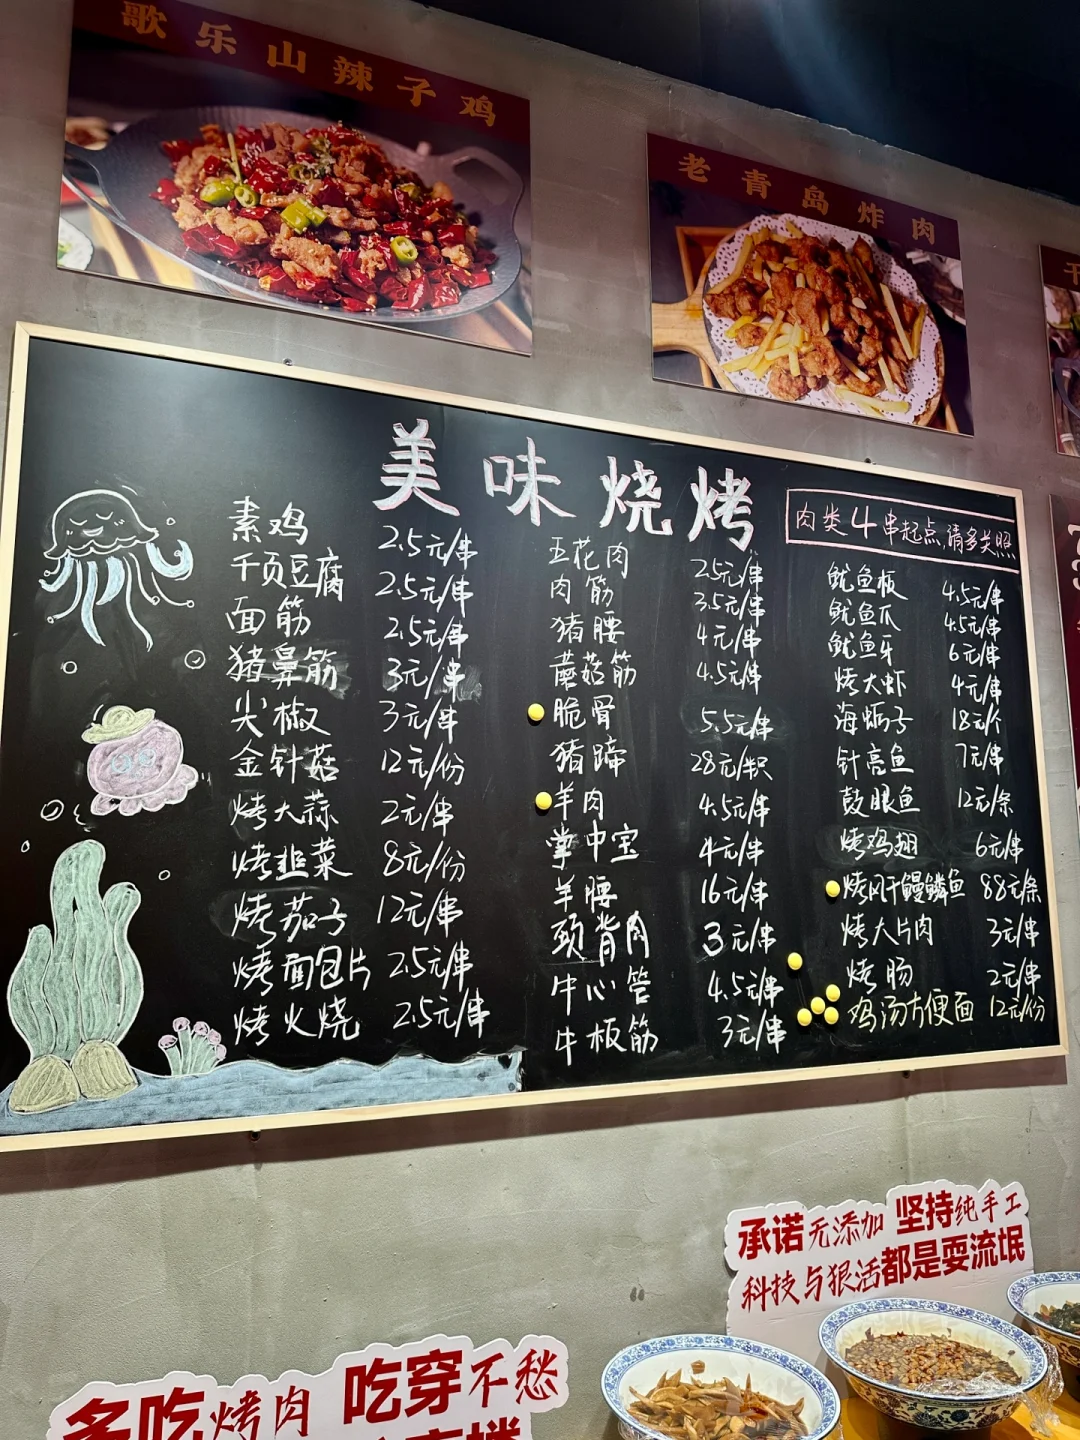 歌乐山辣子鸡
老青岛炸肉
美味烧烤
肉类4串起点,请多关照
素鸡 2.5元/串
千页豆腐 2.5元/串
面筋 2.5元/串
猪鼻筋 3元/串
尖椒 3元/串
金针菇 12元/份
烤大蒜 2元/串
烤韭菜 8元/份
烤茄子 12元/串
烤面包片 2.5元/串
烤火烧 2.5元/串
五花肉 2.5元/串
肉筋 3.5元/串
猪腰 4元/串
蘑菇筋 4.5元/串
脆骨 5.5元/串
猪蹄 28元/只
羊肉 4.5元/串
掌中宝 4元/串
羊腰 16元/串
颈背肉 3元/串
牛心管 4.5元/串
牛板筋 3元/串
鱿鱼板 4.5元/串
鱿鱼爪 4.5元/串
鱿鱼牙 6元/串
烤大虾 4元/串
海蛎子 18元/个
针亮鱼 7元/串
鼓眼鱼 12元/条
烤鸡翅 6元/串
烤风干鳗鳞鱼 88元/条
烤大片肉 3元/串
烤肠 2元/串
鸡汤方便面 12元/份
承诺无添加 坚持纯手工
科技与狠活都是耍流氓
多吃烤肉 吃穿不愁